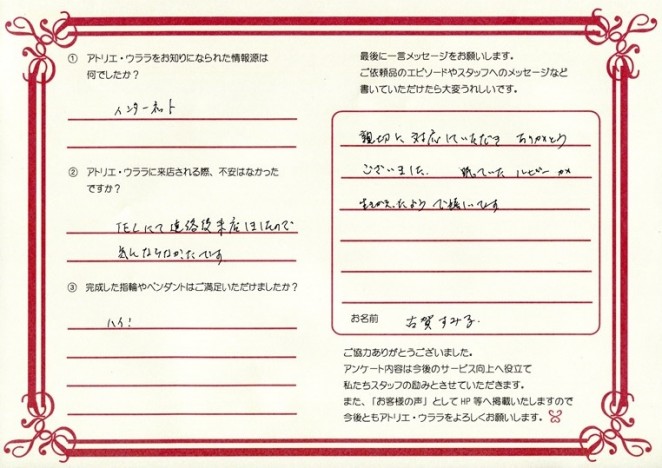 ① アトリエ・ウララをお知りになられた情報源は
何でしたか？
インターネット
② アトリエ・ウララに来店される際、不安はなかった
ですか？
TELにて連絡後来店しましたので
気にならなかったです。
③ 完成した指輪やペンダントはご満足いただけましたか？
ハイ！
最後に一言メッセージをお願いします。
ご依頼品のエピソードやスタッフへのメッセージなど
書いていただけたら大変うれしいです。
親切に対応していただき ありがとう
ございました。 眠っていたルビーが
生きかえったようで嬉しいです
お名前 古賀すみ子
ご協力ありがとうございました。
アンケート内容は今後のサービス向上へ役立て
私たちスタッフの励みとさせていただきます。
また、「お客様の声」として HP 等へ掲載いたしますので
今後ともアトリエ・ウララをよろしくお願いします。